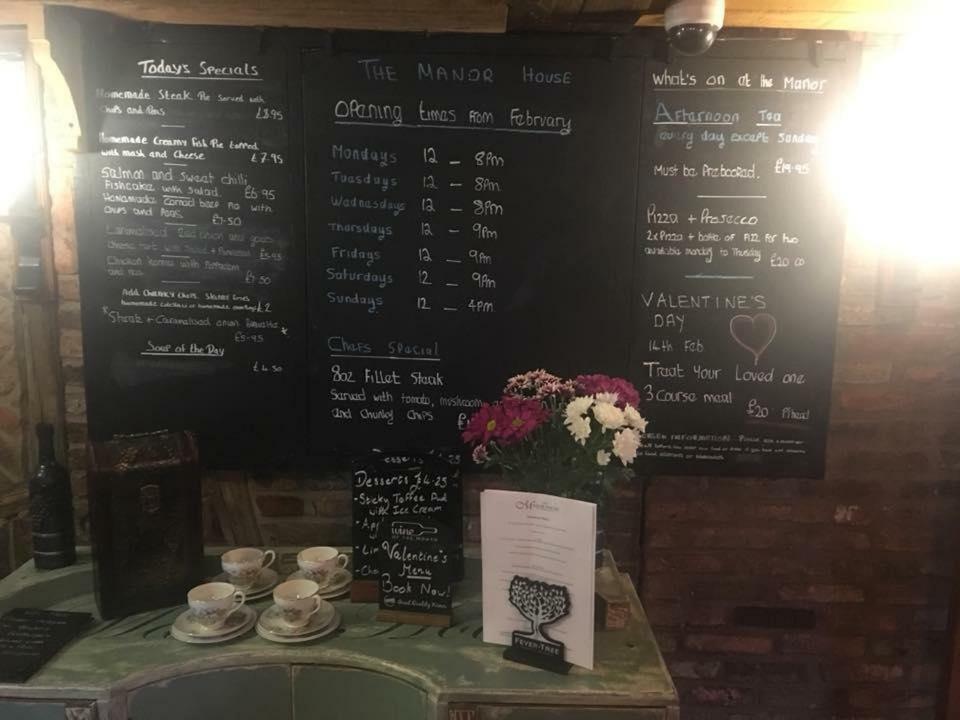 Today's Specials
Homemade Steak Pie served with
Chips and Peas £8.95
Homemade Creamy Fish Pie topped
with mash and Cheese £7.95
Salmon and sweet chilli
Fishcakes with salad. £6.95
Homemade Corned beef Pie with
Chips and Peas. £7.50
Caramalised Red onion and goats
cheese tart with Salad + £5.95
Chicken korma with
and rice £7.50
Add Chunky Chips, Skinny fries
homemade coleslaw or homemade £2
*Steak + Caramalised onion Baguette *
£5.95
Soup of the Day
£4.50
THE MANOR HOUSE
Opening times from February
Mondays 12 – 8pm
Tuesdays 12 – 8pm
Wednesdays 12 – 8pm
Thursdays 12 – 9pm
Fridays 12 – 9pm
Saturdays 12 – 9pm
Sundays 12 – 4pm
Chefs Special
8oz Fillet Steak
Served with tomato, mushroom
and Chunky Chips £
What's on at the Manor
Afternoon Tea
Every day except Sunday
£19.95
Must be Prebooked.
Pizza + Prosecco
2x Pizza + bottle of Fizz for two
available monday to Thursday £20.00
VALENTINE'S
DAY
14th Feb
Treat Your Loved one
3 Course meal
£20 P/head
Desserts £4.25
-Sticky Toffee Pud
with Ice Cream
wine
OF THE MONTH
Valentine's
Menu
Book Now!
FEVER-TREE